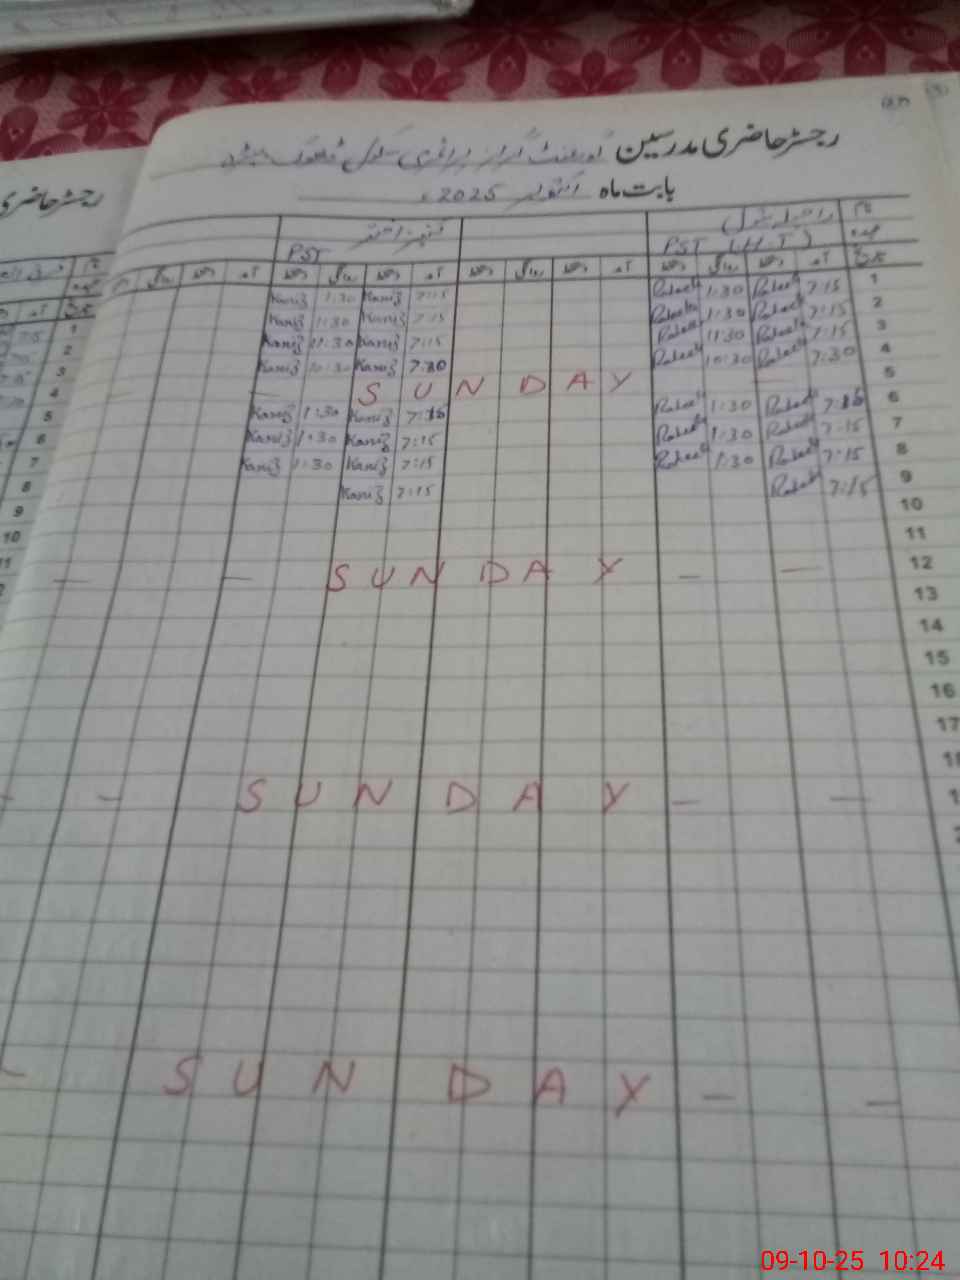 رجسٹر حاضری مدرسین گورنمنٹ گرلز پرائمری سکول
بابت ماہ اکتوبر 2025ء
نام
عہدہ
PST (H.T)
PST
تاریخ آمد دستخط روانگی دستخط آمد دستخط روانگی دستخط آمد دستخط روانگی دستخط آمد دستخط روانگی
1 7:15 Raheela 1:30 Raheela 7:15 Kaniz 1:30 Kaniz
2 7:15 Raheela 1:30 Raheela 7:15 Kaniz 1:30 Kaniz
3 7:15 Raheela 11:30 Raheela 7:15 Kaniz 11:30 Kaniz
4 7:30 Raheela 10:30 Raheela 7:30 Kaniz 10:30 Kaniz
5 SUNDAY
6 7:15 Raheela 1:30 Raheela 7:15 Kaniz 1:30 Kaniz
7 7:15 Raheela 1:30 Raheela 7:15 Kaniz 1:30 Kaniz
8 7:15 Raheela 1:30 Raheela 7:15 Kaniz 1:30 Kaniz
9 7:15 Raheela 7:15 Kaniz
10
11
12 — — SUNDAY — —
13
14
15
16
17
— — SUNDAY — —
— SUNDAY — —
رجسٹر حاضری
نام
عہدہ
تاریخ
آمد
1
2
3
4
5
6
7
8
9
10
11
09-10-25 10:24